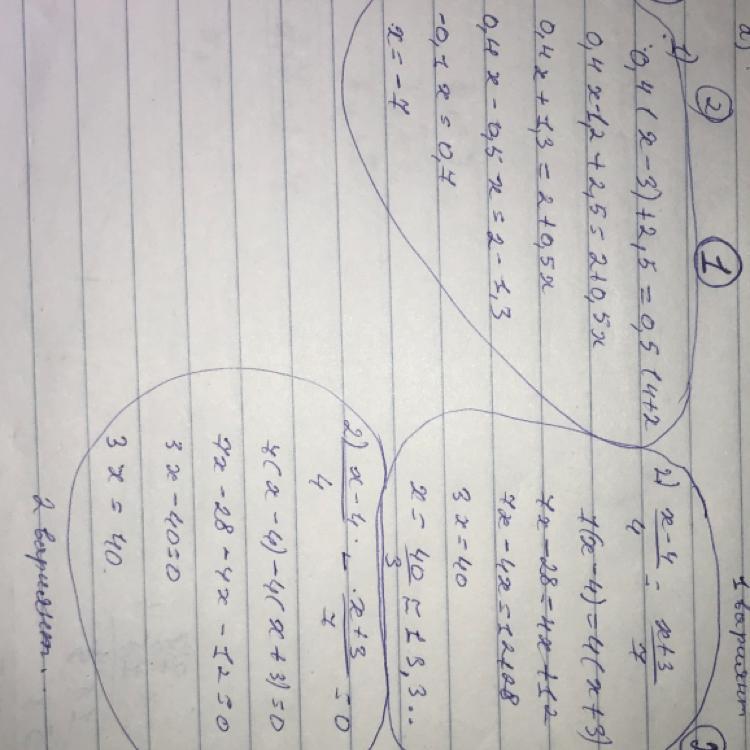 а)
1 вариант
②
①
1)
0,4(x-3)+2,5=0,5(4+x
0,4x-1,2+2,5=2+0,5x
0,4x+1,3=2+0,5x
0,4x-0,5x=2-1,3
-0,1x=0,7
x=-7
2) x-4/4 = x+3/7
7(x-4)=4(x+3)
7x-28=4x+12
7x-4x=12+28
3x=40
x=40/3≈13,3..
2) x-4/4 - x+3/7 =0
7(x-4)-4(x+3)=0
7x-28-4x-12=0
3x-40=0
3x=40.
2 вариант.